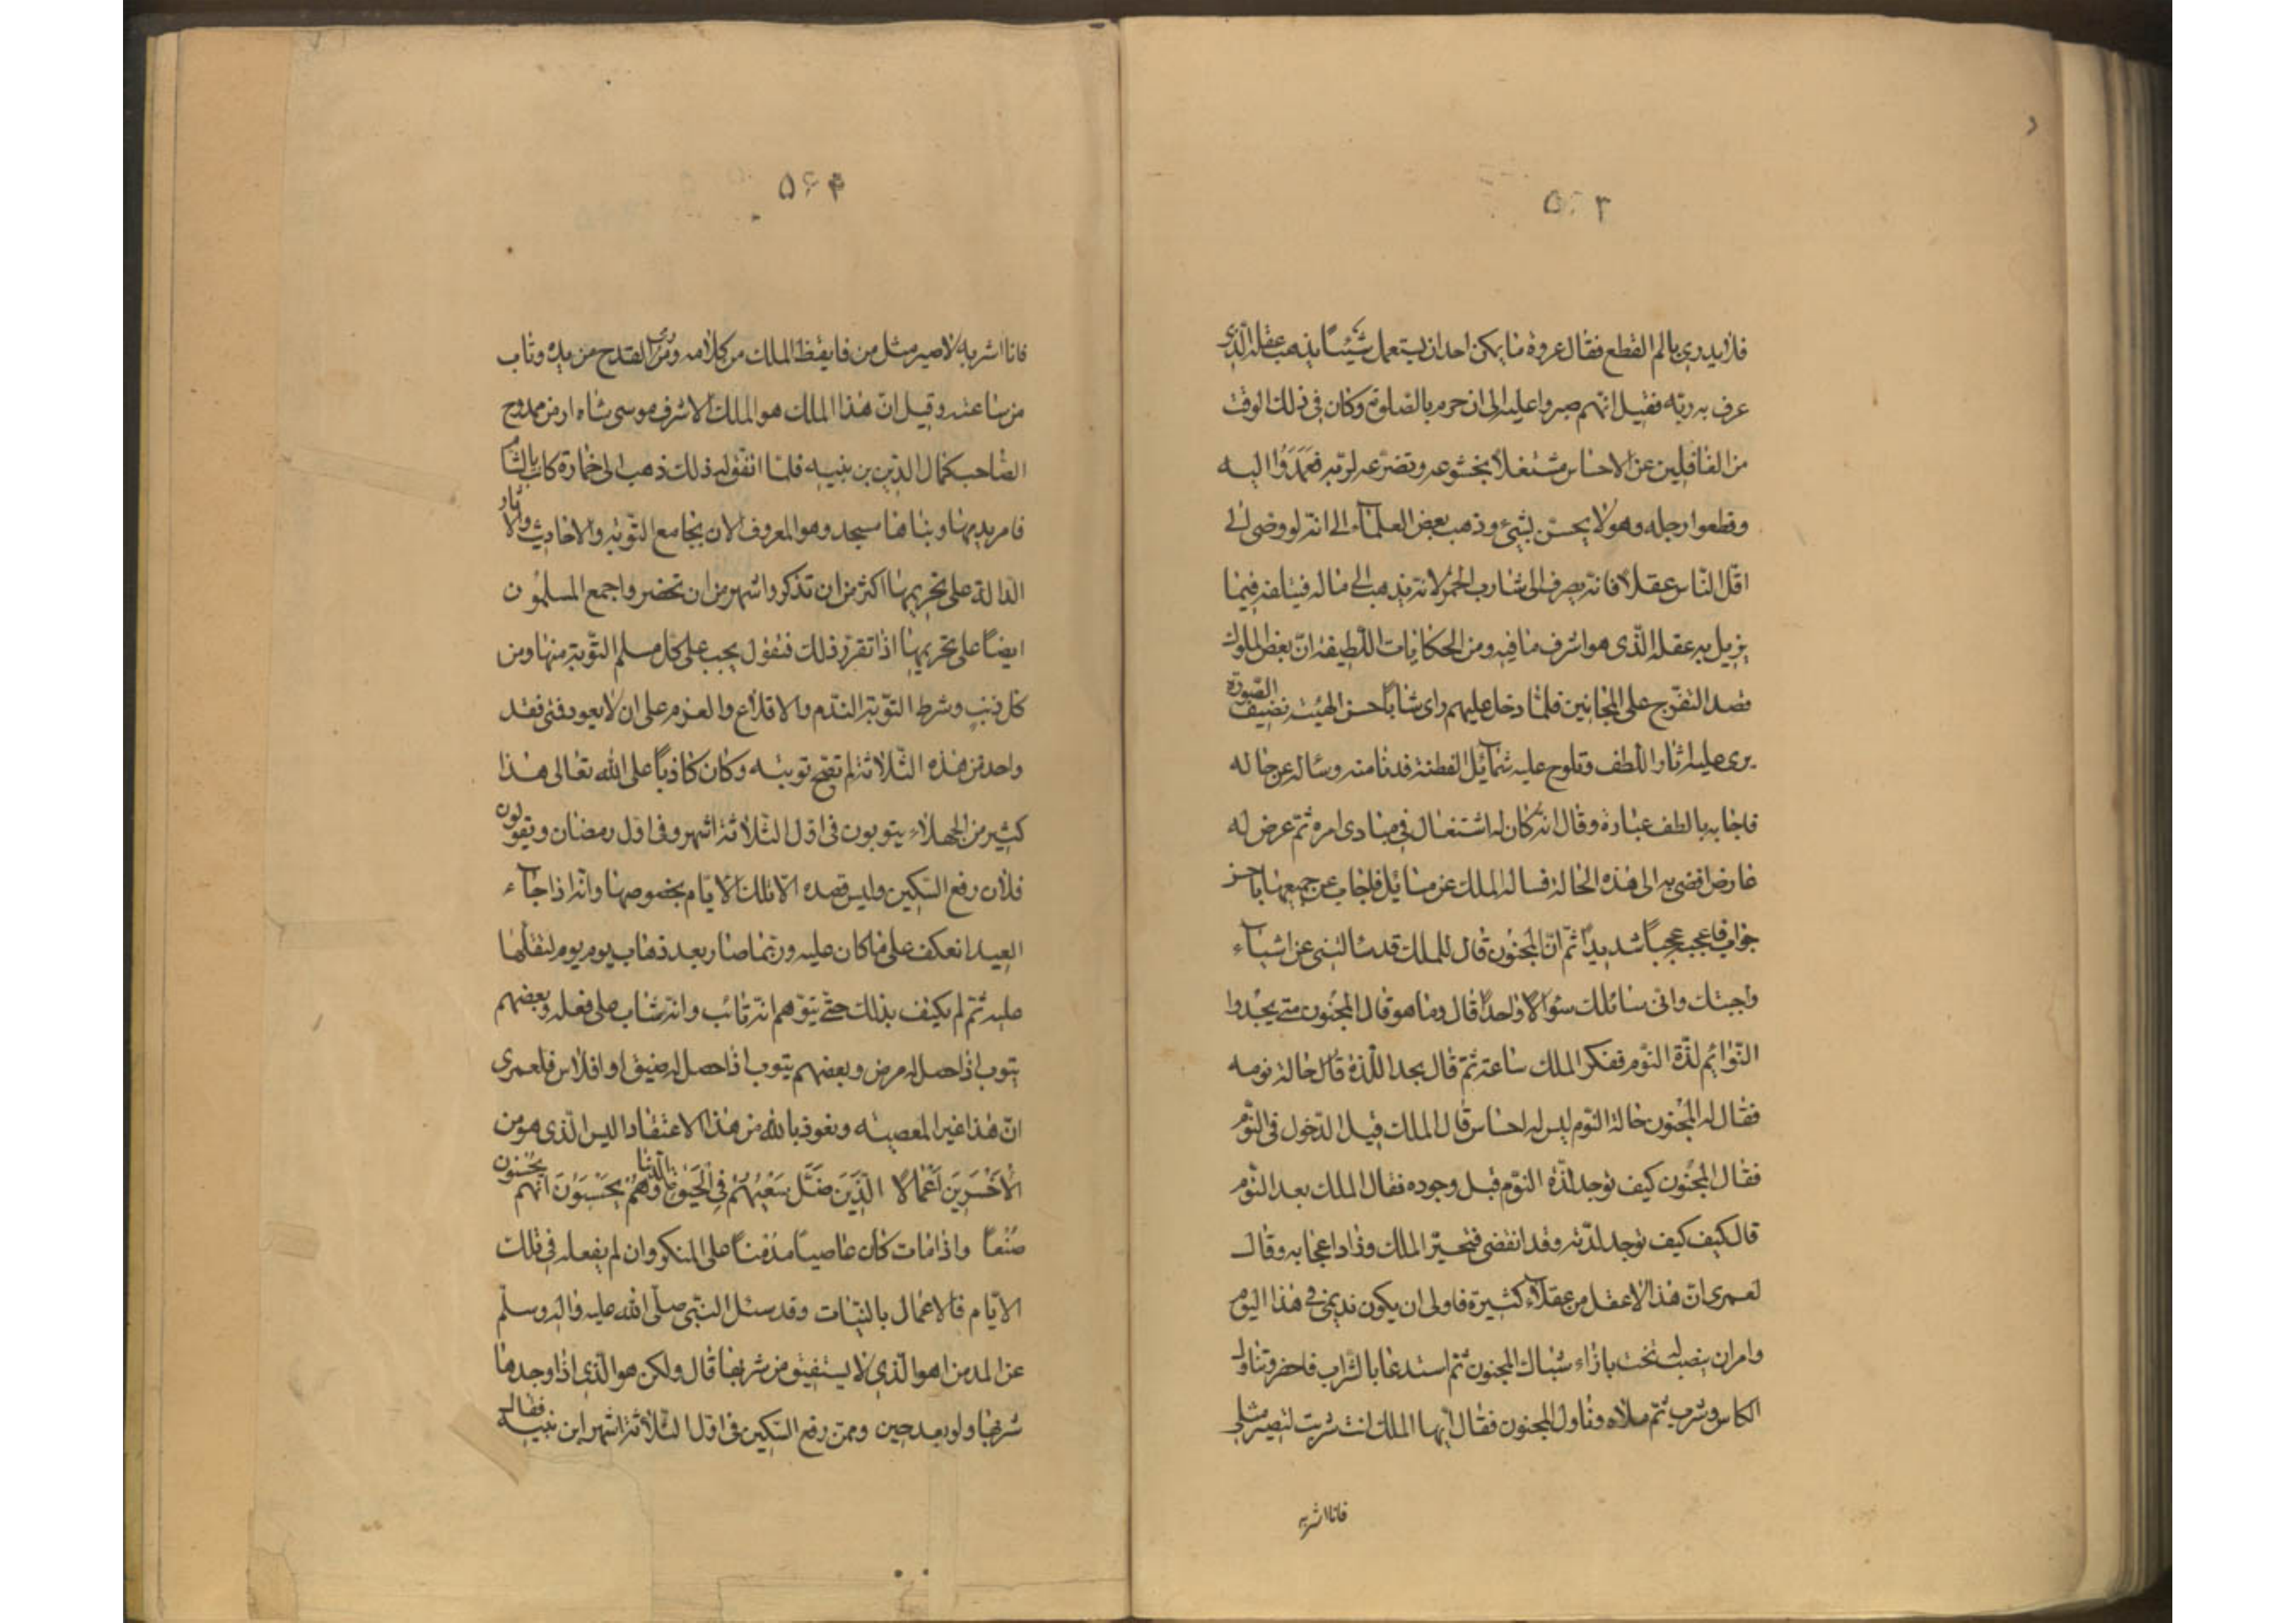 ۵۶۳
فلا يدرى بالم القطع فقال عروة ما يمكن احد ان يستعمل شيئاً يذهب عقله الّذى
عرف به ربّه فقيل انّهم صبروا عليه الى ان حرم بالصلوة وكان فى ذلك الوقت
من الغافلين عن الاحساس مشتغلاً بخشوعه وتضرّعه لربّه فعَمَدُوا اليه
وقطعوا رجله وهو لا يحسّ بشئ وذهب بعض العلمآء الى انّه لو وصى الى
اقلّ النّاس عقلاً فانّه يصرف الى شارب الخمر لانّه يذهب الى ماله فيتلفه فيما
يزيل به عقله الّذى هو اشرف ما فيه ومن الحكايات اللّطيفة انّ بعض الملوك
قصد التفرّج على المجانين فلمّا دخل عليهم راى شابّاً حسن الهيئة نضيف الصّورة
يرى عليه اثار اللّطف وتلوح عليه شمآئل الفطنة فدنا منه وساله عن حاله
فاجابه بالطف عبارة وقال انّه كان له اشتغال فى مبادى امره ثمّ عرض له
عارض افضى به الى هذه الحالة فساله الملك عن مسائل فاجاب عن جميعها باحسن
جواب فاعجبه عجباً شديداً ثمّ انّ المجنون قال للملك قد سالتنى عن اشيآء
واجبتك وانّى سائلك سؤالاً واحداً قال وما هو قال المجنون متى يجدوا
النّوائم لذّة النّوم ففكر الملك ساعة ثمّ قال يجد اللّذة قال حالة نومه
فقال له المجنون حالة النّوم ليس له احساس قال الملك قبل الدّخول فى النّوم
فقال المجنون كيف توجد لذّة النّوم قبل وجوده فقال الملك بعد النّوم
قال كيف كيف توجد لذّته وقد انقضى فتحيّر الملك وزاد اعجابه وقال
لعمرى انّ هذا لاعقل من عقلآء كثيرة فاولى ان يكون نديمى فى هذا اليوم
وامر ان ينصب له تخت بازاء شبّاك المجنون ثمّ استدعا بالشّراب فاحضر وتناول
الكاس وشرب ثمّ ملاه وناول المجنون فقال ايّها الملك انت شربت لتصير مثلى
فانا اشربه
۵۶۴
فانا اشربه لاصير مثل من فايقظ الملك من كلامه ورمى القدح من يده وتاب
من ساعته وقيل انّ هذا الملك هو الملك الاشرف موسى شاه ارمن ممدوح
الصّاحب كمال الدّين بن بنيه فلمّا اتّفق له ذلك ذهب الى خمارة كانت بالشّام
فامر بهدمها وبناها مسجد وهو المعروف الان بجامع التّوبة والاحاديث والاثار
الدّالة على تحريمها اكثر من ان تذكر واشهر من ان تحضر واجمع المسلمون
ايضاً على تحريمها اذا تقرّر ذلك فنقول يجب على كلّ مسلم التّوبة منها ومن
كلّ ذنبٍ وشرط التّوبة النّدم والاقلاع والعزم على ان لا يعود فمتى فقد
واحد من هذه الثّلاثة لم تصحّ توبته وكان كاذباً على الله تعالى هذا
كثير من الجهلاء يتوبون فى اوّل الثّلاثة اشهر وفى اوّل رمضان ويقولون
فلان رفع السّكين وليس قصده الّا تلك الايّام بخصوصها وانّه اذا جآء
العيد انعكف على ما كان عليه وربّما صار يعد ذهاب يوم يوم لثقلها
عليه ثمّ لم يكيف بذلك حتّى يتوّهم انّه تائب وانّه يثاب على فعله وبعضهم
يتوب اذا حصل له مرض وبعضهم يتوب اذا حصل له ضيق او افلاس فلعمرى
انّ هذا غير المعصيته ونعوذ بالله من هذا الاعتقاد اليس الّذى هو من
الْاَخْسَرِينَ اَعْمَالًا الَّذِينَ ضَلَّ سَعْيُهُمْ فِى الْحَيٰوةِ الدُّنْيَا وَهُمْ يَحْسَبُونَ اَنَّهُمْ يُحْسِنُونَ
صُنْعاً واذا مات كان عاصياً مدمناً على المنكر وان لم يفعله فى تلك
الايّام فالاعمال بالنّيات وقد سئل النّبى صلّى الله عليه واله وسلّم
عن المدمن اهو الّذى لا يستفيق من شربها قال ولكن هو الّذى اذا وجدها
شربها ولو بعد حين وممن رفع السّكين فى اوّل الثّلاثة اشهر ابن نبيه فقال